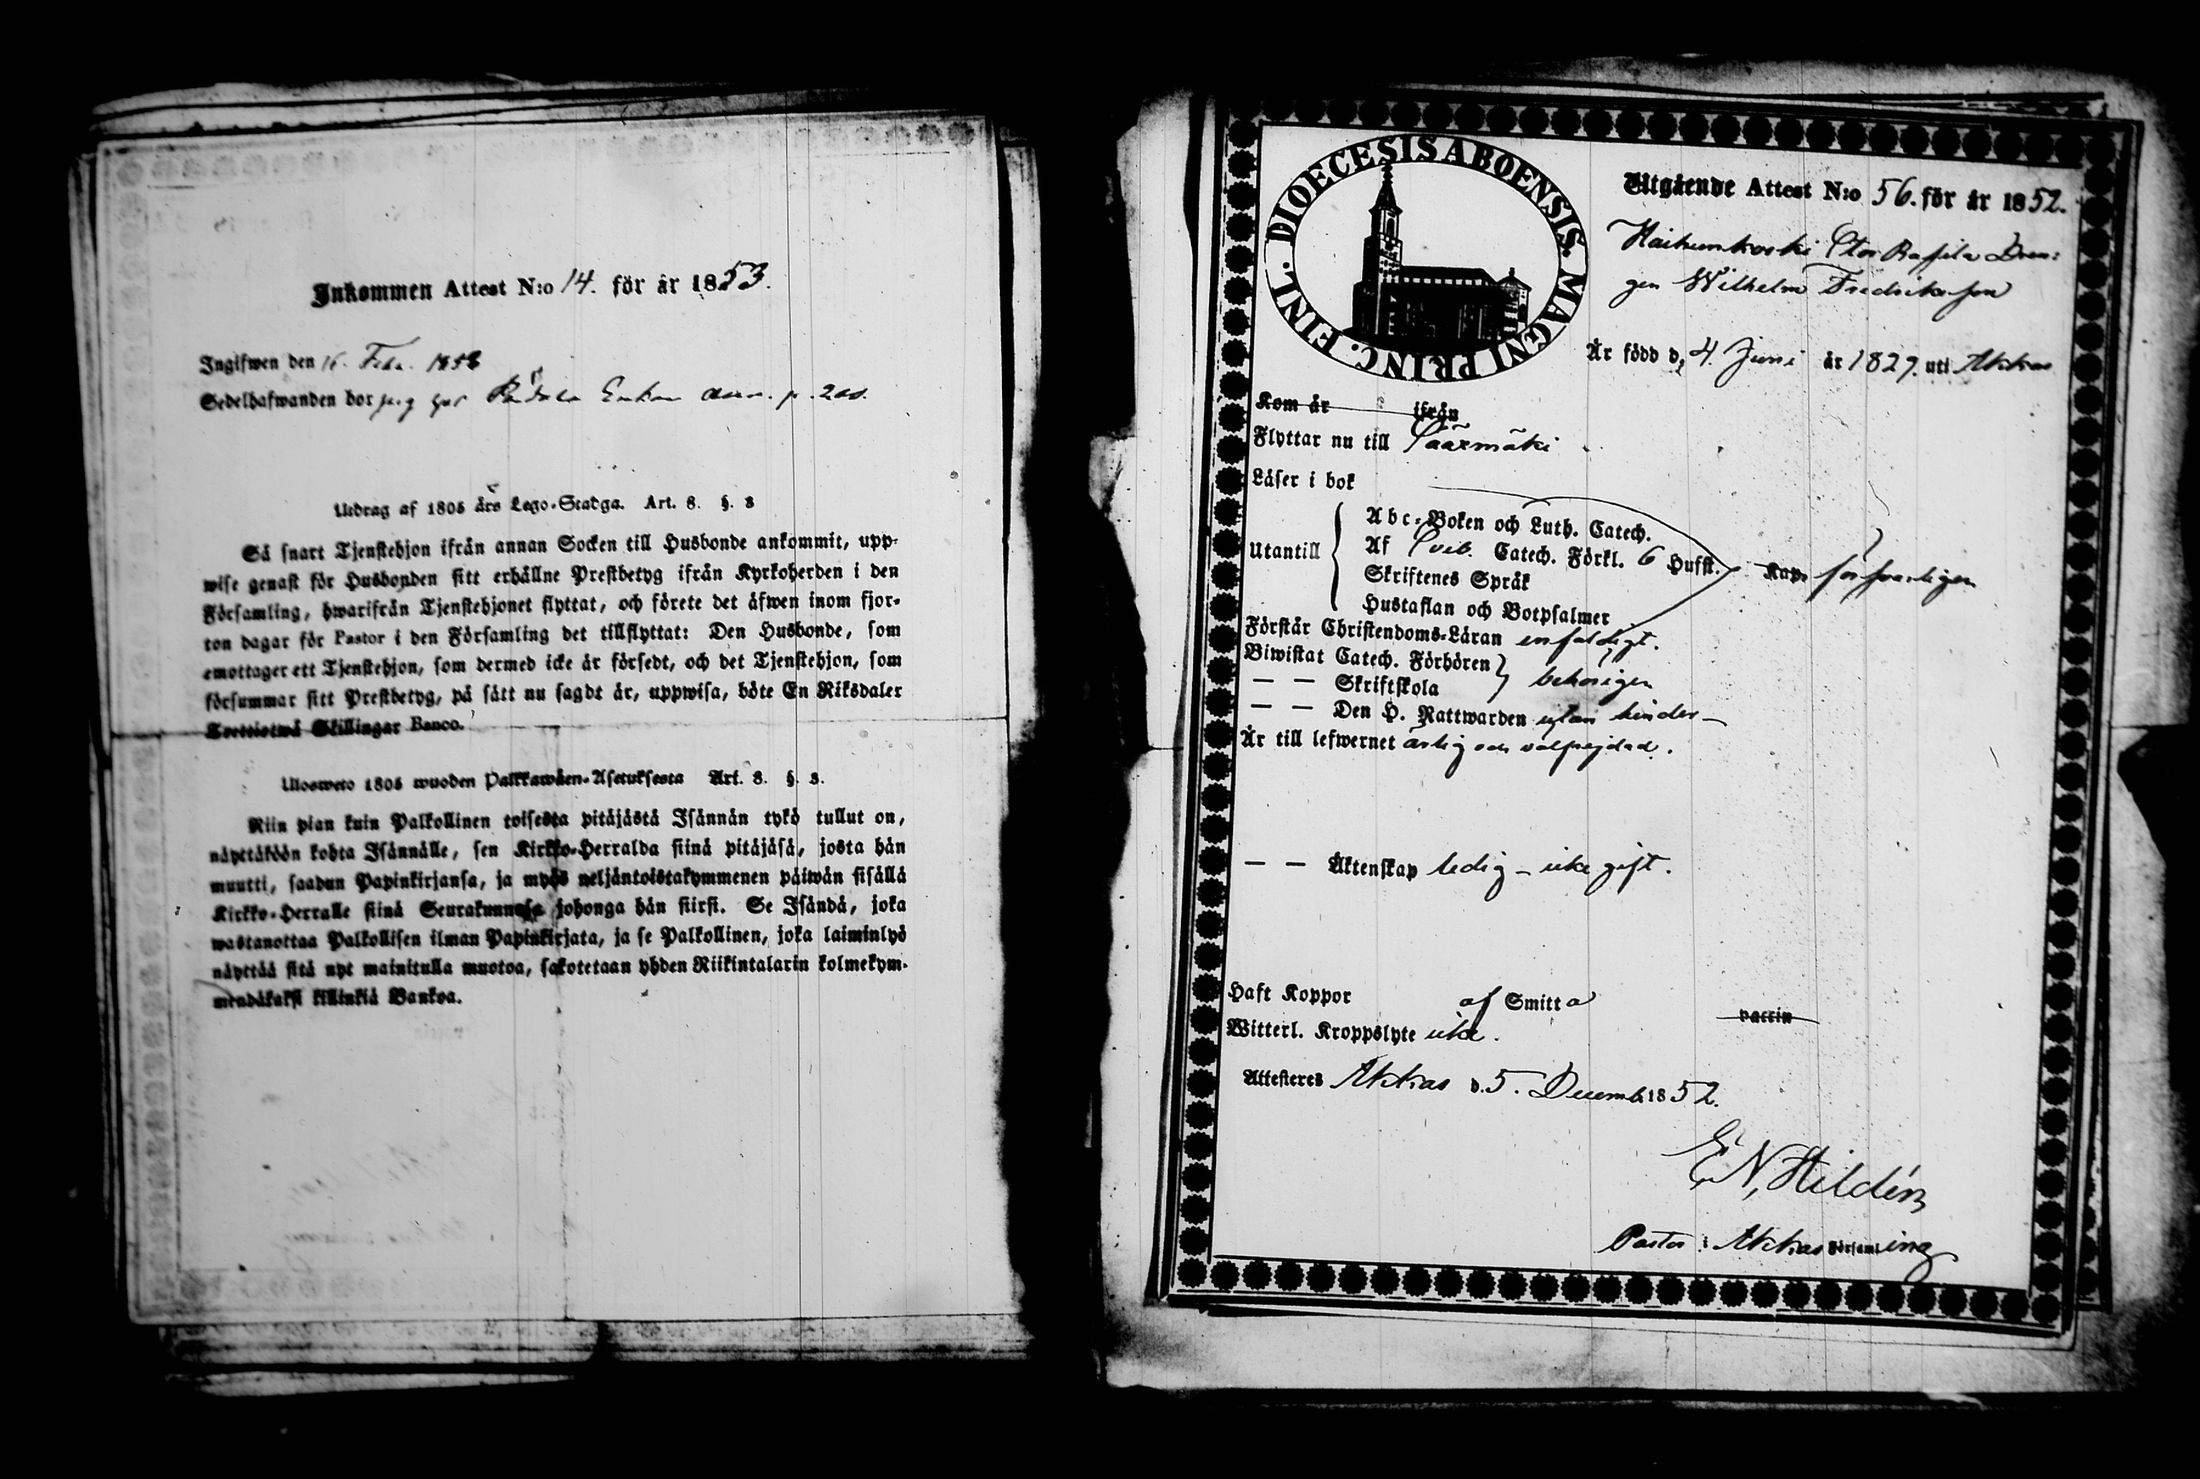 Inkommen Attest N:o 14. för år 1853.
Ingifwen den 16. Febr. 1853
Sedelhafwanden bor
Utdrag af 1805 års Lego-Stadga. Art. 8. §. 3
Så snart Tjenstehjon ifrån annan Socken till Husbonde ankommit, upp-
wise genast för Husbonden sitt erhållne Prestbetyg ifrån Kyrkoherden i den
Församling, hwarifrån Tjenstehjonet flyttat, och förete det äfwen inom fjor-
ton dagar för Pastor i den Församling det tillflyttat: Den Husbonde, som
emottager ett Tjenstehjon, som dermed icke är försedt, och det Tjenstehjon, som
försummar sitt Prestbetyg, på sätt nu sagdt är, uppwisa, böte En Riksdaler
Trettiotwå Skillingar Banco.
Ulosweto 1805 wuoden Palkkawäen-Asetuksesta Art. 8. §. 3.
Niin pian kuin Palkollinen toisesta pitäjästä Isännän tykö tullut on,
näyttäköön kohta Isännälle, sen Kirkko-Herralda siinä pitäjäsä, josta hän
muutti, saadun Papinkirjansa, ja myös neljäntoistakymmenen päiwän sisällä
Kirkko-Herralle siinä Seurakunnasa johonga hän siirsi. Se Isändä, joka
wastanottaa Palkollisen ilman Papinkirjata, ja se Palkollinen, joka laiminlyö
näyttää sitä nyt mainitulla muotoa, sakotetaan yhden Riikintalarin kolmekym-
mendäkaksi killinkiä Bankoa.
DIOECESIS ABOENSIS. MAGNI PRINC. FINL.
Utgående Attest N:o 56. för år 1852.
Haihunkoski Stor Rassila Dren:
gen Wilhelm Fredriksson
Är född d, 4 Juni år 1829. uti Akkas
Kom år ifrån
Flyttar nu till Sääxmäki
Läser i bok
Utantill
Abc-Boken och Luth. Catech.
Af Sveb. Catech. Förkl. 6 Hufst. Kap. försvarligen
Skriftenes Språk
Hustaflan och Botpsalmer
Förstår Christendoms-Läran enfaldigt.
Biwistat Catech. Förhören
— — Skriftskola behörigen
— — Den H. Nattwarden utan hinder —
Är till lefwernet ärlig och välfrejdad.
— — Äktenskap ledig – icke gift.
Haft Koppor af Smitta vaccin
Witterl. Kroppslyte icke.
Attesteres Akkas d. 5. Decemb. 1852.
E. N. Hildén
Pastor i Akkas Församling